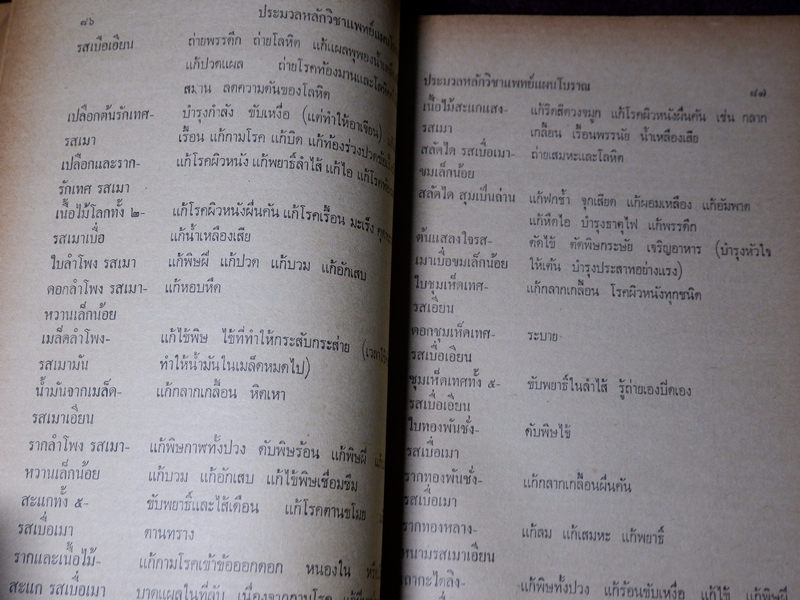 ๘๖
ประมวลหลักวิชาแพทย์แผนโบราณ
รสเบื่อเอียน ถ่ายพรรดึก ถ่ายโลหิต แก้แผลพุพอง
แก้ปวดแผล ถ่ายโรคท้องมานและโลหิต
สมาน ลดความดันของโลหิต
เปลือกต้นรักเทศ- บำรุงกำลัง ขับเหงื่อ (แต่ทำให้อาเจียน)
รสเมา เรื้อน แก้กามโรค แก้บิด แก้ท้องร่วงปวด
เปลือกและราก- แก้โรคผิวหนัง แก้พยาธิ์ลำไส้ แก้ไอ แก้โรค
รักเทศ รสเมา
เนื้อไม้โลกทั้ง ๒- แก้โรคผิวหนังผื่นคัน แก้โรคเรื้อน มะเร็ง
รสเมาเบื่อ แก้น้ำเหลืองเสีย
ใบลำโพง รสเมา แก้พิษฝี แก้ปวด แก้บวม แก้อักเสบ
ดอกลำโพง รสเมา- แก้หอบหืด
หวานเล็กน้อย
เมล็ดลำโพง- แก้ไข้พิษ ไข้ที่ทำให้กระสับกระส่าย
รสเมามัน ทำให้น้ำมันในเมล็ดหมดไป)
น้ำมันจากเมล็ด- แก้กลากเกลื้อน หิดเหา
รสเมาเอียน
รากลำโพง รสเมา- แก้พิษกาฬทั้งปวง ดับพิษร้อน แก้พิษฝี
หวานเล็กน้อย แก้บวม แก้อักเสบ แก้ไข้พิษเซื่องซึม
สะแกทั้ง ๕- ขับพยาธิ์และไส้เดือน แก้โรคตานขโมย
รสเบื่อเมา ตานทราง
รากและเนื้อไม้- แก้กามโรคเข้าข้อออกดอก หนองใน
สะแก รสเบื่อเมา บาดแผลในที่ลับ เนื่องจากกามโรค
ประมวลหลักวิชาแพทย์แผนโบราณ
๘๗
เนื้อไม้สะแกแสง- แก้ริดสีดวงจมูก แก้โรคผิวหนังผื่นคัน เช่น กลาก
รสเมา เกลื้อน เรื้อนพรรนัย น้ำเหลืองเสีย
สลัดได รสเบื่อเมา- ถ่ายเสมหะและโลหิต
ขมเล็กน้อย
สลัดได สุมเป็นถ่าน แก้ฟกช้ำ จุกเสียด แก้ผอมเหลือง แก้อัมพาต
แก้หืดไอ บำรุงธาตุไฟ แก้พรรดึก
ต้นแสลงใจรส- ตัดไข้ ตัดพิษกระษัย เจริญอาหาร (บำรุงหัวใจ
เมาเบื่อขมเล็กน้อย ให้เต้น บำรุงประสาทอย่างแรง)
ใบชุมเห็ดเทศ- แก้กลากเกลื้อน โรคผิวหนังทุกชนิด
รสเอียน
ดอกชุมเห็ดเทศ- ระบาย
รสเบื่อเอียน
ชุมเห็ดเทศทั้ง ๕- ขับพยาธิ์ในลำไส้ รู้ถ่ายเองปิดเอง
รสเบื่อเอียน
ใบทองพันชั่ง- ดับพิษไข้
รสเบื่อเมา
รากทองพันชั่ง- แก้กลากเกลื้อนผื่นคัน
รสเบื่อเมา
รากทองหลาง- แก้ลม แก้เสมหะ แก้พยาธิ์
หนามรสเมาเอียน
แก้พิษทั้งปวง แก้ร้อนขับเหงื่อ แก้ไข้ แก้พิษฝี